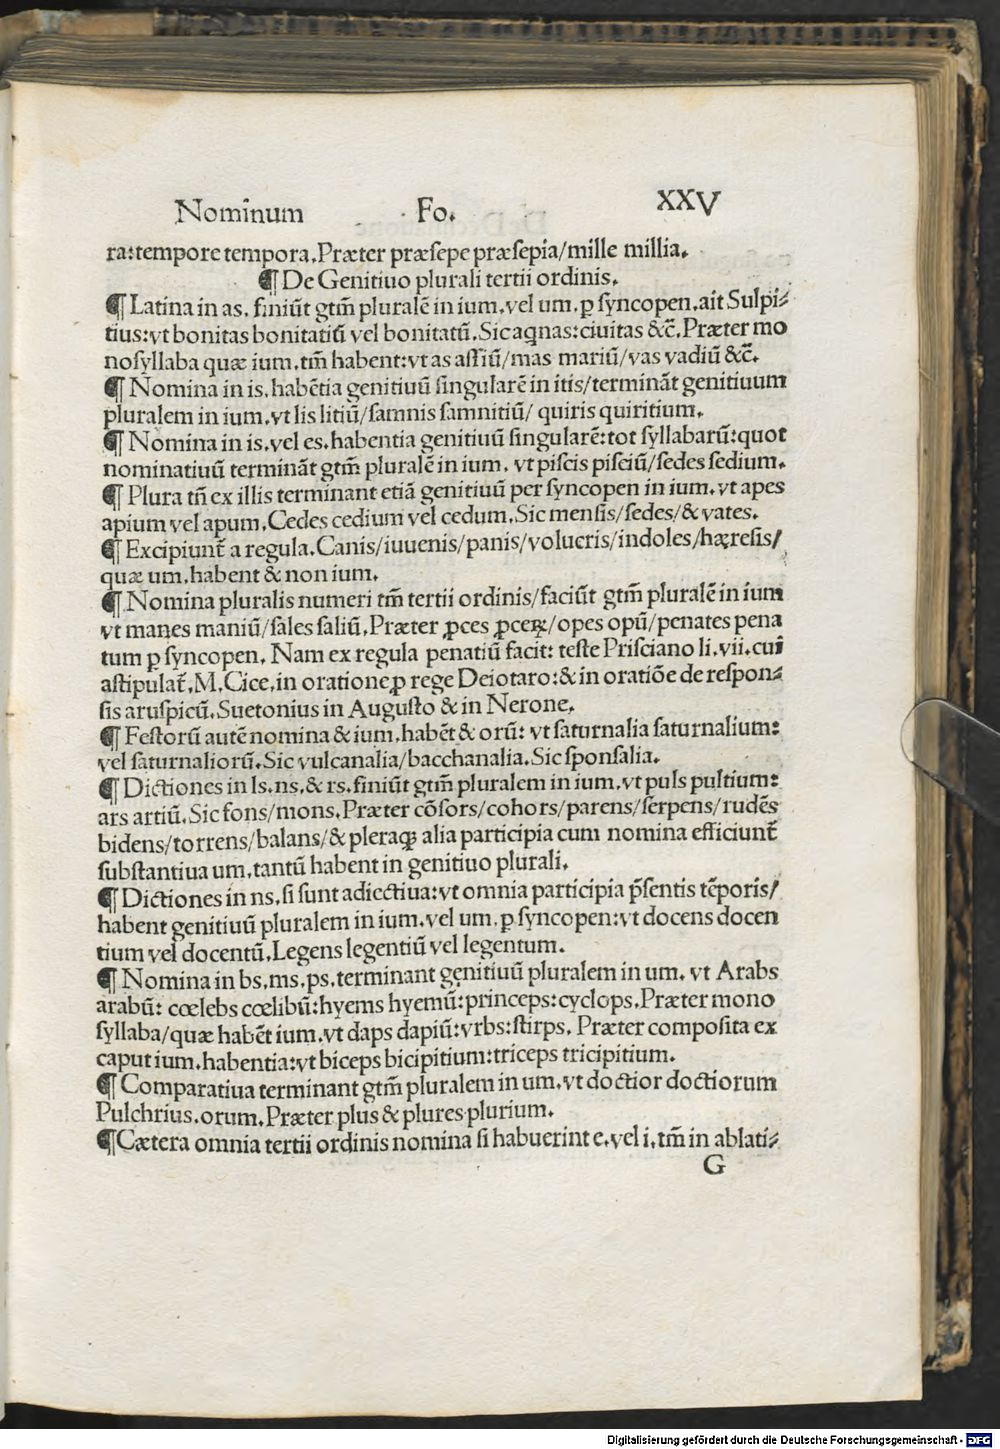 Nominum Fo. XXV
ra:tempore tempora. Præter præſepe præſepia/mille millia.
¶ De Genitiuo plurali tertii ordinis.
¶ Latina in as. finiūt gtm̄ pluralē in ium. vel um. ꝑ ſyncopen. ait Sulpi⸗
tius: vt bonitas bonitatiū vel bonitatū. Sic aqnas: ciuitas &c̄. Præter mo
noſyllaba quæ ium. tm̄ habent: vt as aſſiū/mas mariū/vas vadiū &c̄.
¶ Nomina in is. habētia genitiuū ſingularē in itis/termināt genitiuum
pluralem in ium. vt lis litiū/ſamnis ſamnitiū/ quiris quiritium.
¶ Nomina in is. vel es. habentia genitiuū ſingularē: tot ſyllabarū: quot
nominatiuū termināt gtm̄ pluralē in ium. vt piſcis piſciū/ſedes ſedium.
¶ Plura tn̄ ex illis terminant etiā genitiuū per ſyncopen in ium. vt apes
apium vel apum. Cedes cedium vel cedum. Sic menſis/ſedes/& vates.
¶ Excipiunt̄ a regula. Canis/iuuenis/panis/volucris/indoles/hæreſis/
quæ um. habent & non ium.
¶ Nomina pluralis numeri tm̄ tertii ordinis/faciūt gtm̄ pluralē in ium
vt manes maniū/ſales ſaliū. Præter ꝓces ꝓceꝝ/opes opū/penates pena
tum ꝑ ſyncopen. Nam ex regula penatiū facit: teſte Priſciano li. vii. cui
aſtipulat̄. M. Cice. in oratione ꝓ rege Deiotaro: & in oratiōe de reſpon⸗
ſis aruſpicū. Suetonius in Auguſto & in Nerone.
¶ Feſtorū autē nomina & ium. habēt & orū: vt ſaturnalia ſaturnalium:
vel ſaturnaliorū. Sic vulcanalia/bacchanalia. Sic ſponſalia.
¶ Dictiones in ls. ns. & rs. finiūt gtm̄ pluralem in ium. vt puls pultium:
ars artiū. Sic fons/mons. Præter cōſors/cohors/parens/ſerpens/rudēs
bidens/torrens/balans/& pleraqꝫ alia participia cum nomina efficiunt̄
ſubſtantiua um. tantū habent in genitiuo plurali.
¶ Dictiones in ns. ſi ſunt adiectiua: vt omnia participia p̄ſentis tēporis/
habent genitiuū pluralem in ium. vel um. ꝑ ſyncopen: vt docens docen
tium vel docentū. Legens legentiū vel legentum.
¶ Nomina in bs. ms. ps. terminant genitiuū pluralem in um. vt Arabs
arabū: cœlebs cœlibū: hyems hyemū: princeps: cyclops. Præter mono
ſyllaba/quæ habēt ium. vt daps dapiū: vrbs: ſtirps. Præter compoſita ex
caput ium. habentia: vt biceps bicipitium: triceps tricipitium.
¶ Comparatiua terminant gtm̄ pluralem in um. vt doctior doctiorum
Pulchrius. orum. Præter plus & plures plurium.
¶ Cætera omnia tertii ordinis nomina ſi habuerint e. vel i. tm̄ in ablati⸗
G
Digitalisierung gefördert durch die Deutsche Forschungsgemeinschaft - DFG